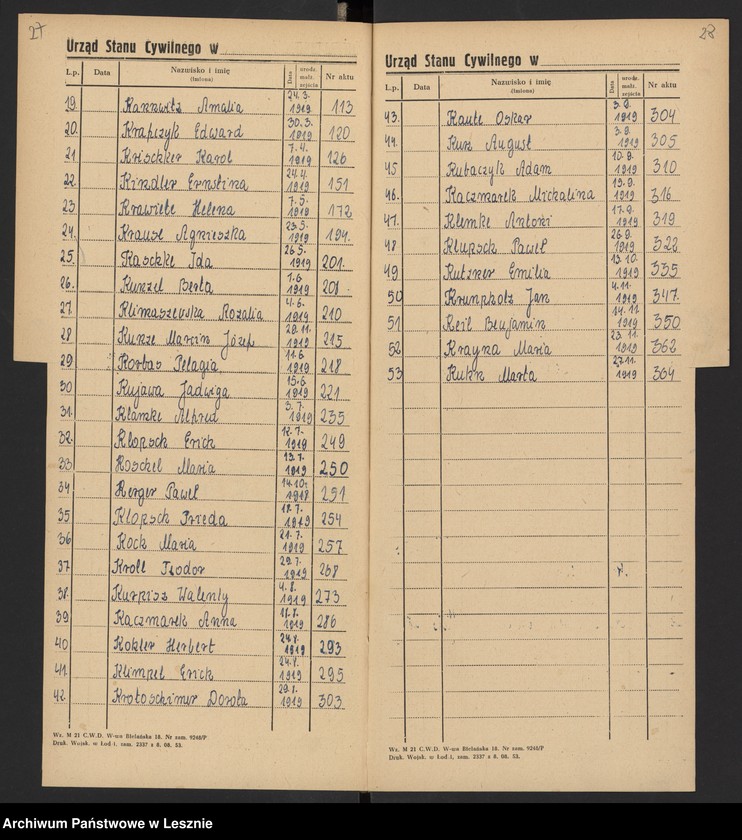 27
Urząd Stanu Cywilnego w
L.p. Data Nazwisko i imię (imiona) Data urodz. małż. zejścia Nr aktu
19. Kannwitz Amalia 24.3. 1919 113
20. Krapczyk Edward 30.3. 1919 120
21 Krischker Karol 7.4. 1919 126
22. Kindler Ernstina 24.4. 1919 151
23 Krawiele Helena 7.5. 1919 172
24. Krause Agnieszka 23.5. 1919 194.
25. Kaschke Ida 26.5. 1919 201.
26. Kunzel Berta 1.6. 1919 208
27. Klimaszewska Rozalia 4.6. 1919 210
28 Kunze Marcin Józef 1919 215
29 Korbas Pelagia 11.6 1919 218
30 Kujawa Jadwiga 15.6 1919 221
31. Klamke Alfred 3.7. 1919 235
32. Klopsch Erich 12.7. 1919 249
33 Koschel Maria 13.7. 1919 250
34 Kerger Paweł 14.10. 1918 251
35 Klopsch Frieda 18.7. 1919 254
36 Kock Maria 21.7. 1919 257
37 Kroll Teodor 29.7. 1919 268
38. Kurpisz Walenty 4.8. 1919 273
39. Kaczmarek Anna 1919 286
40 Kohler Herbert 24.8. 1919 293
41. Klimpel Erich 24.8. 1919 295
42. Krotoschimer Dorota 1919 303
Wz. M 21 C.W.D. W-wa Bielańska 18. Nr zam. 9248/P
Druk. Wojsk. w Łodzi, zam. 2337 z 8. 08. 53.
28
Urząd Stanu Cywilnego w
L.p. Data Nazwisko i imię (imiona) Data urodz. małż. zejścia Nr aktu
43. Kaute Oskar 3.9. 1919 304
44. Kurz August 3.9. 1919 305
45 Kubaczyk Adam 10.9. 1919 310
46. Kaczmarek Michalina 1919 316
47. Klemke Antoni 17.9. 1919 319
48 Klupsch Paweł 26.9. 1919 322
49 Kutzner Emilia 13.10. 1919 335
50 Krumpholz Jan 4.11. 1919 347.
51 Keil Benjamin 14.11. 1919 350
52 Krayna Maria 23.11. 1919 362
53 Kuhn Marta 27.11. 1919 364
Wz. M 21 C.W.D. W-wa Bielańska 18. Nr zam. 9248/P
Druk. Wojsk. w Łodzi, zam. 2337 z 8. 08. 53.
Archiwum Państwowe w Lesznie